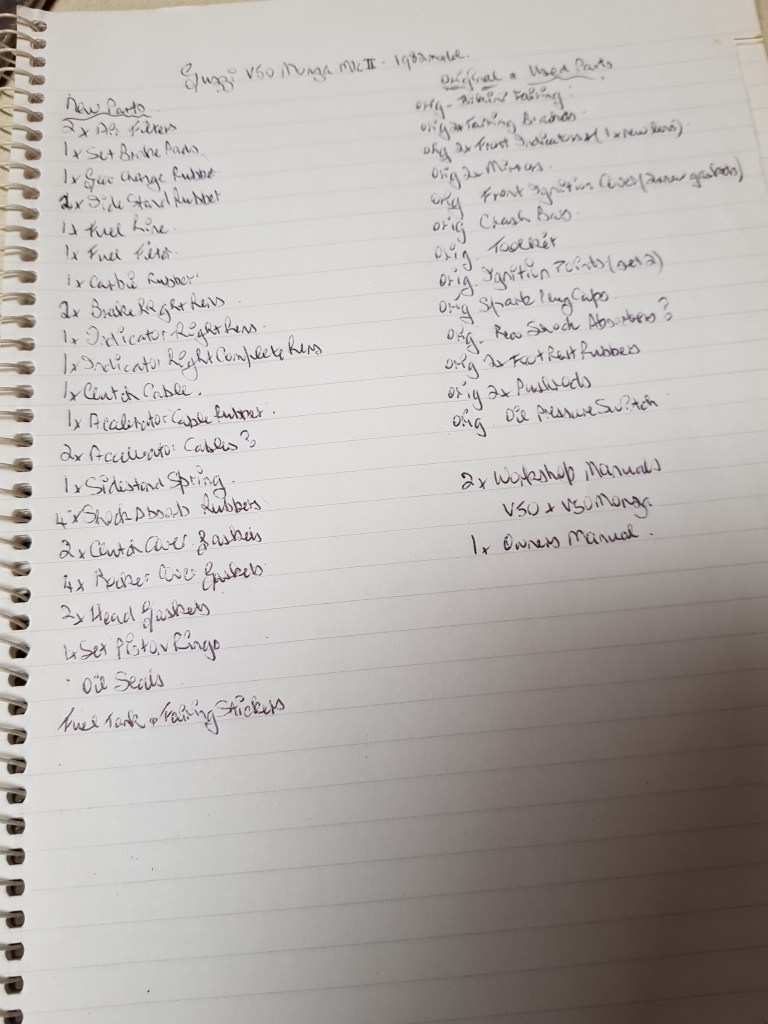 Guzzi V50 Monza MK II - 1982 make.
New Parts
2 x Air Filters
1 x Set Brake Pads
1 x Gear Change Rubber
2 x Side Stand Rubber
1 x Fuel Line
1 x Fuel Filter
1 x Carbie Rubber
2 x Brake Right Lens
1 x Indicator Right Lens
1 x Indicator Right Complete Lens
1 x Clutch Cable.
1 x Accelerator Cable Rubber.
2 x Accelerator Cables?
1 x Sidestand Spring
4 x Shock Absorb Rubbers
2 x Cover Gaskets
4 x Rocker Cover Gaskets
2 x Head Gaskets
Set Piston Rings
Oil Seals
Fuel Tank + Fairing Stickers
Original + Used Parts
orig - Bikini Fairing
orig 2x Fairing
orig 2x Front Indicators (1 x new lens)
orig 2x Mirrors
orig Front Ignition Cover (2 x new gaskets)
orig Crash Bars
orig. Toolkit
orig. Ignition Points (set 2)
orig Spark Plug Caps
orig. Rear Shock Absorbers?
orig 2x Foot Rest Rubbers
orig 2x Pushrods
orig Oil Pressure Switch
2 x Workshop Manuals
V50 + V50 Monza
1 x Owners Manual.